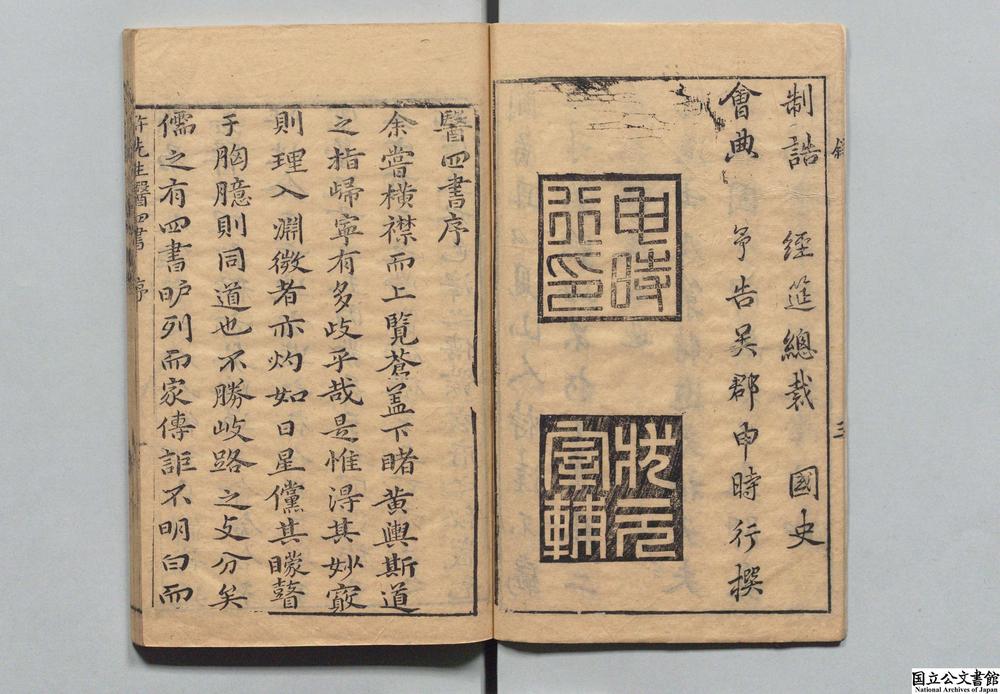 制誥 經筵總裁 國史
會典 予告吳郡申時行撰
申時
行印
狀元
宰輔
醫四書序
余嘗橫襟而上覽蒼盖下睹黄輿斯道
之指歸寧有多歧乎哉是惟得其妙竅
則理入淵微者亦灼如日星儻其矇瞽
于胸臆則同道也不勝岐路之攴分矣
儒之有四書昈列而家傳詎不明白而
許先生醫四書 序
国立公文書館
National Archives of Japan